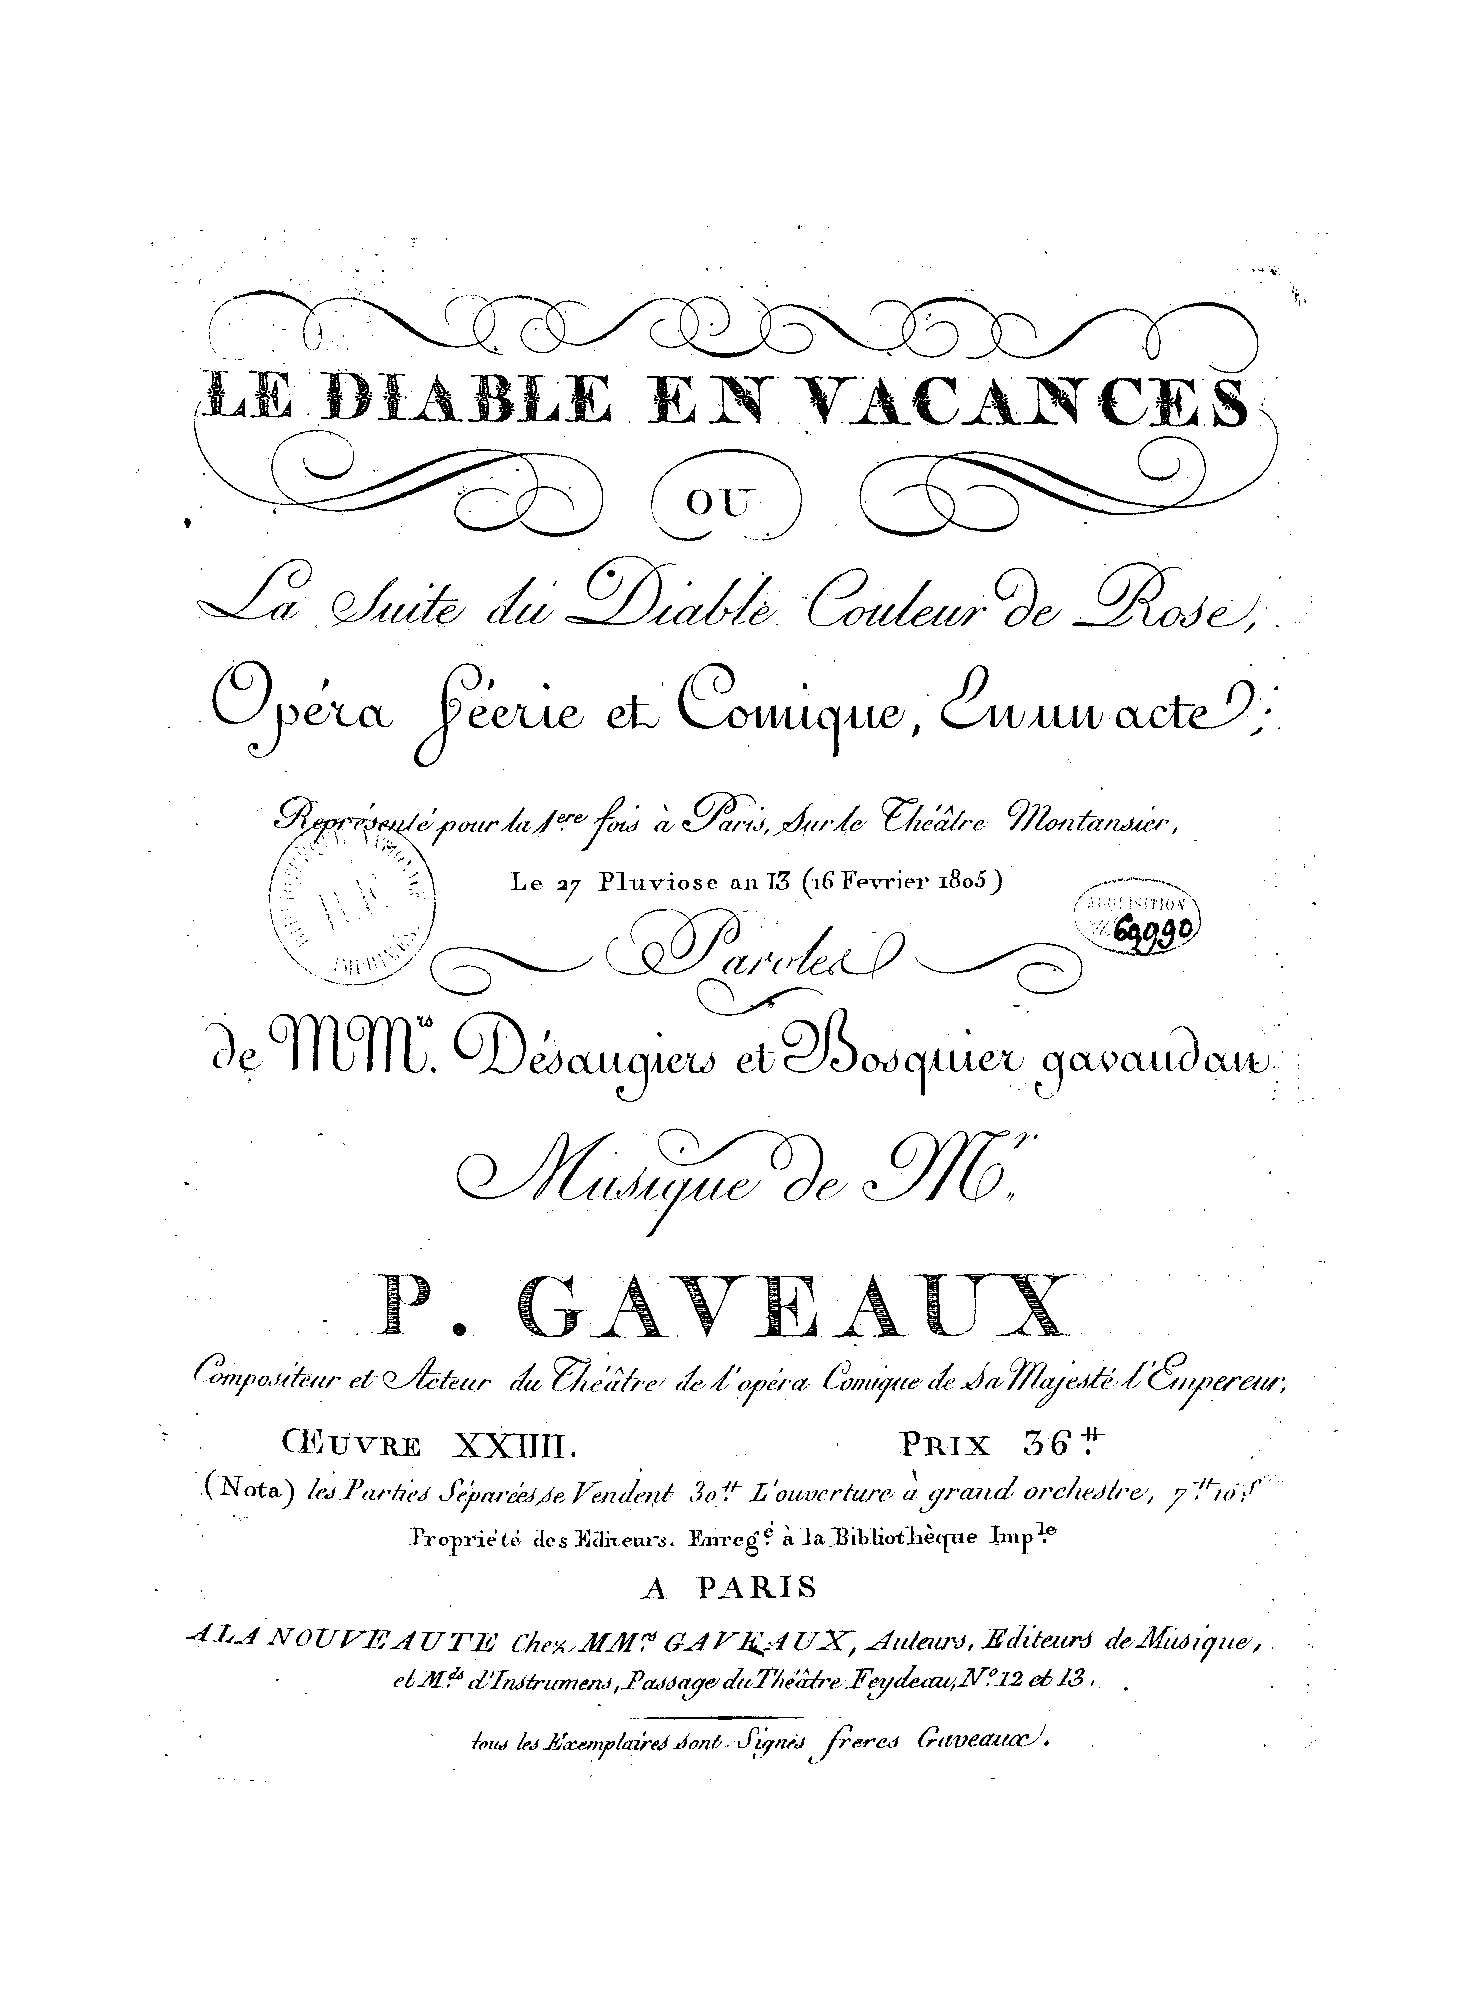 LE DIABLE EN VACANCES
OU
La Suite du Diable Couleur de Rose,
Opéra féerie et Comique, En un acte;
Représenté pour la 1ere. fois à Paris, Sur le Théâtre Montansier,
Le 27 Pluviose an 13 (16 Fevrier 1805)
ACQUISITION
69990
Paroles
de MMrs. Désaugiers et Bosquier gavaudan
Musique de Mr.
P. GAVEAUX
Compositeur et Acteur du Théâtre de l'opéra Comique de Sa Majesté l'Empereur,
ŒUVRE XXIIII. PRIX 36.tt
(Nota) les Parties Séparées se Vendent 30.tt L'ouverture à grand orchestre, 7.tt 10.s
Propriété des Editeurs. Enregé. à la Bibliothèque Imple.
A PARIS
A LA NOUVEAUTE Chez MMrs. GAVEAUX, Auteurs, Editeurs de Musique,
et Mds. d'Instrumens, Passage du Théâtre Feydeau, No. 12 et 13.
tous les Exemplaires sont Signés frères Gaveaux.